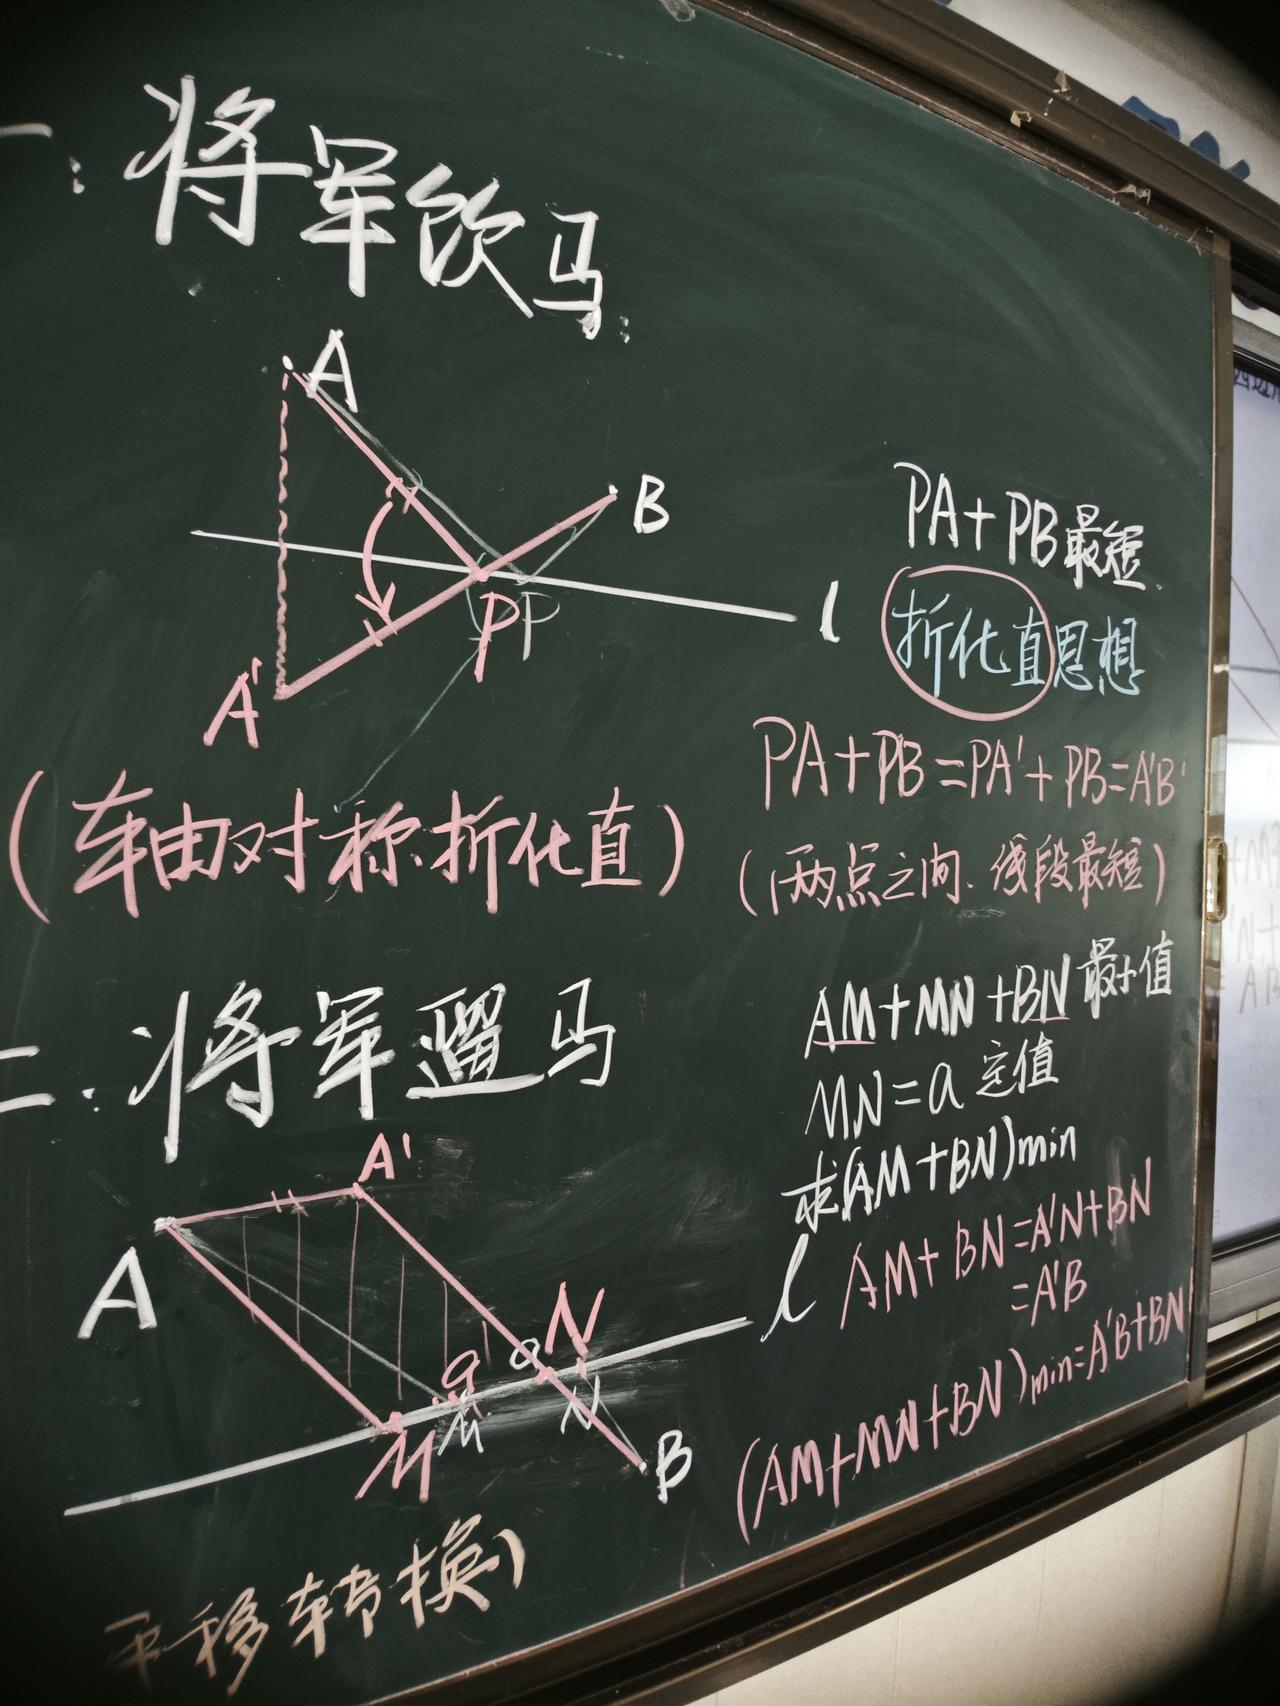 一:将军饮马:
A
B
PP
l
A'
PA+PB最短.
折化直思想
PA+PB=PA'+PB=A'B
(轴对称.折化直)
(两点之间、线段最短)
二:将军遛马
AM+MN+BN最小值
MN=a定值
求(AM+BN)min
AM+BN=A'N+BN
=A'B
(AM+MN+BN)min=A'B+BN
A'
A
N
l
a
a
M
M
N
B
平移转换)